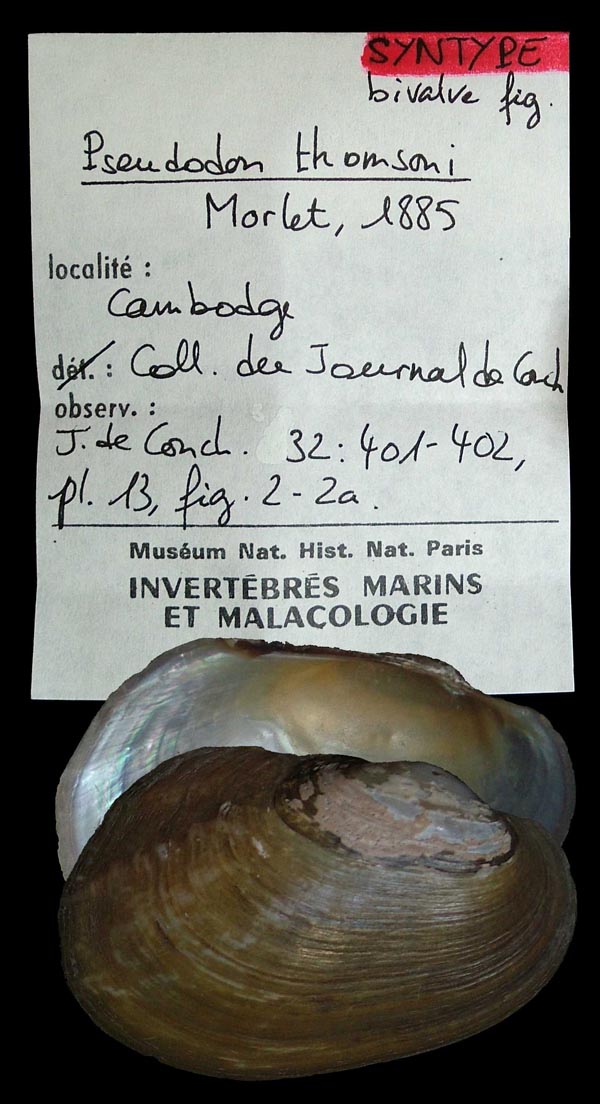 SYNTYPE
bivalve fig.
Pseudodon thomsoni
Morlet, 1885
localité :
Cambodge
dét. : Coll. du Journal de Conch
observ. :
J. de Conch. 32: 401-402,
pl. 13, fig. 2-2a.
Muséum Nat. Hist. Nat. Paris
INVERTÉBRÉS MARINS
ET MALACOLOGIE